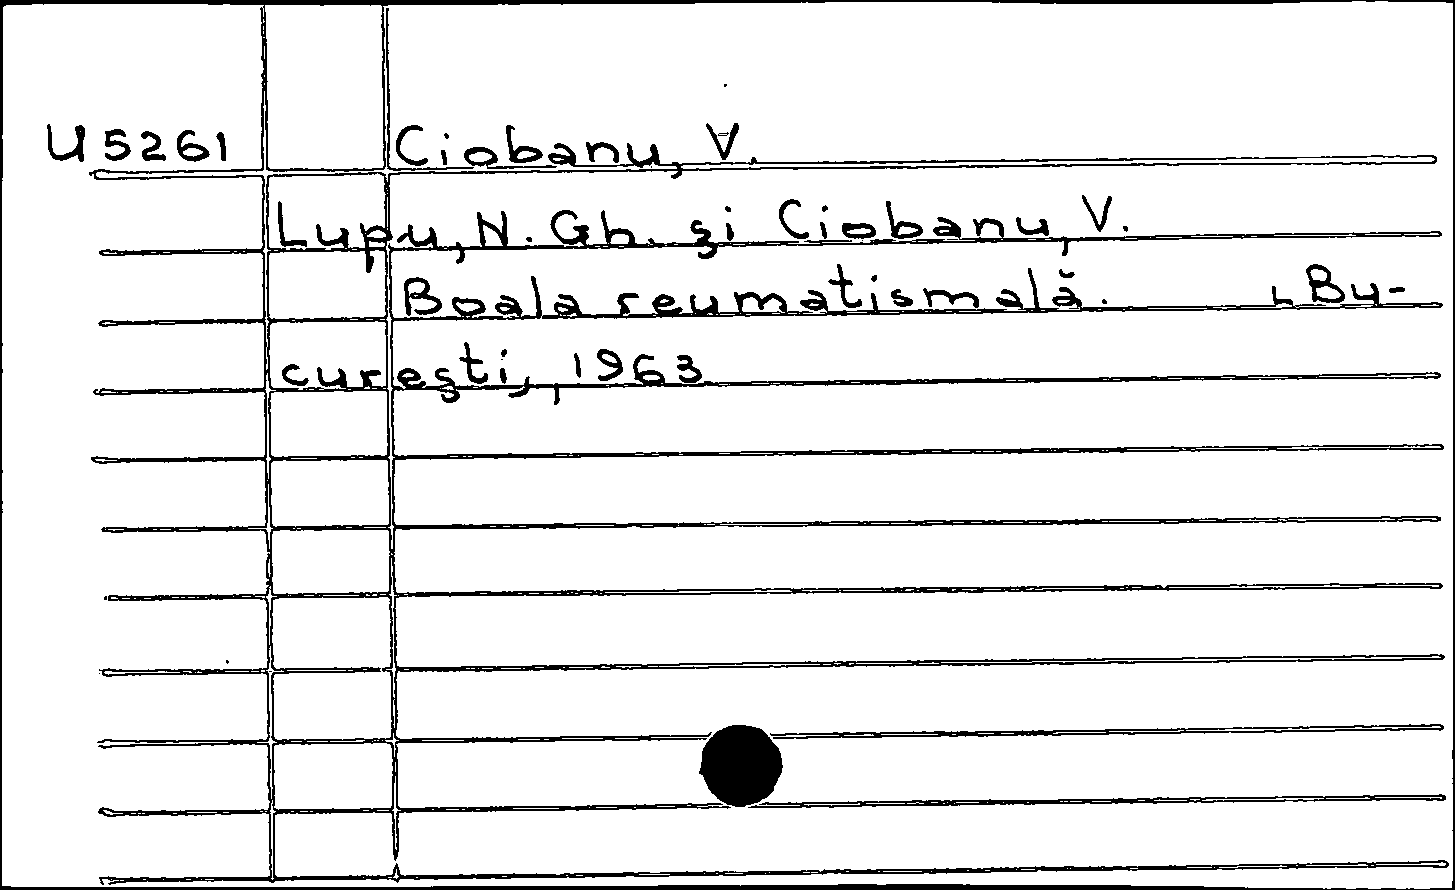 U5261 Ciobanu, V.
Lupu, N. Gh. şi Ciobanu, V.
Boala reumatismală. [Bu-
cureşti], 1963